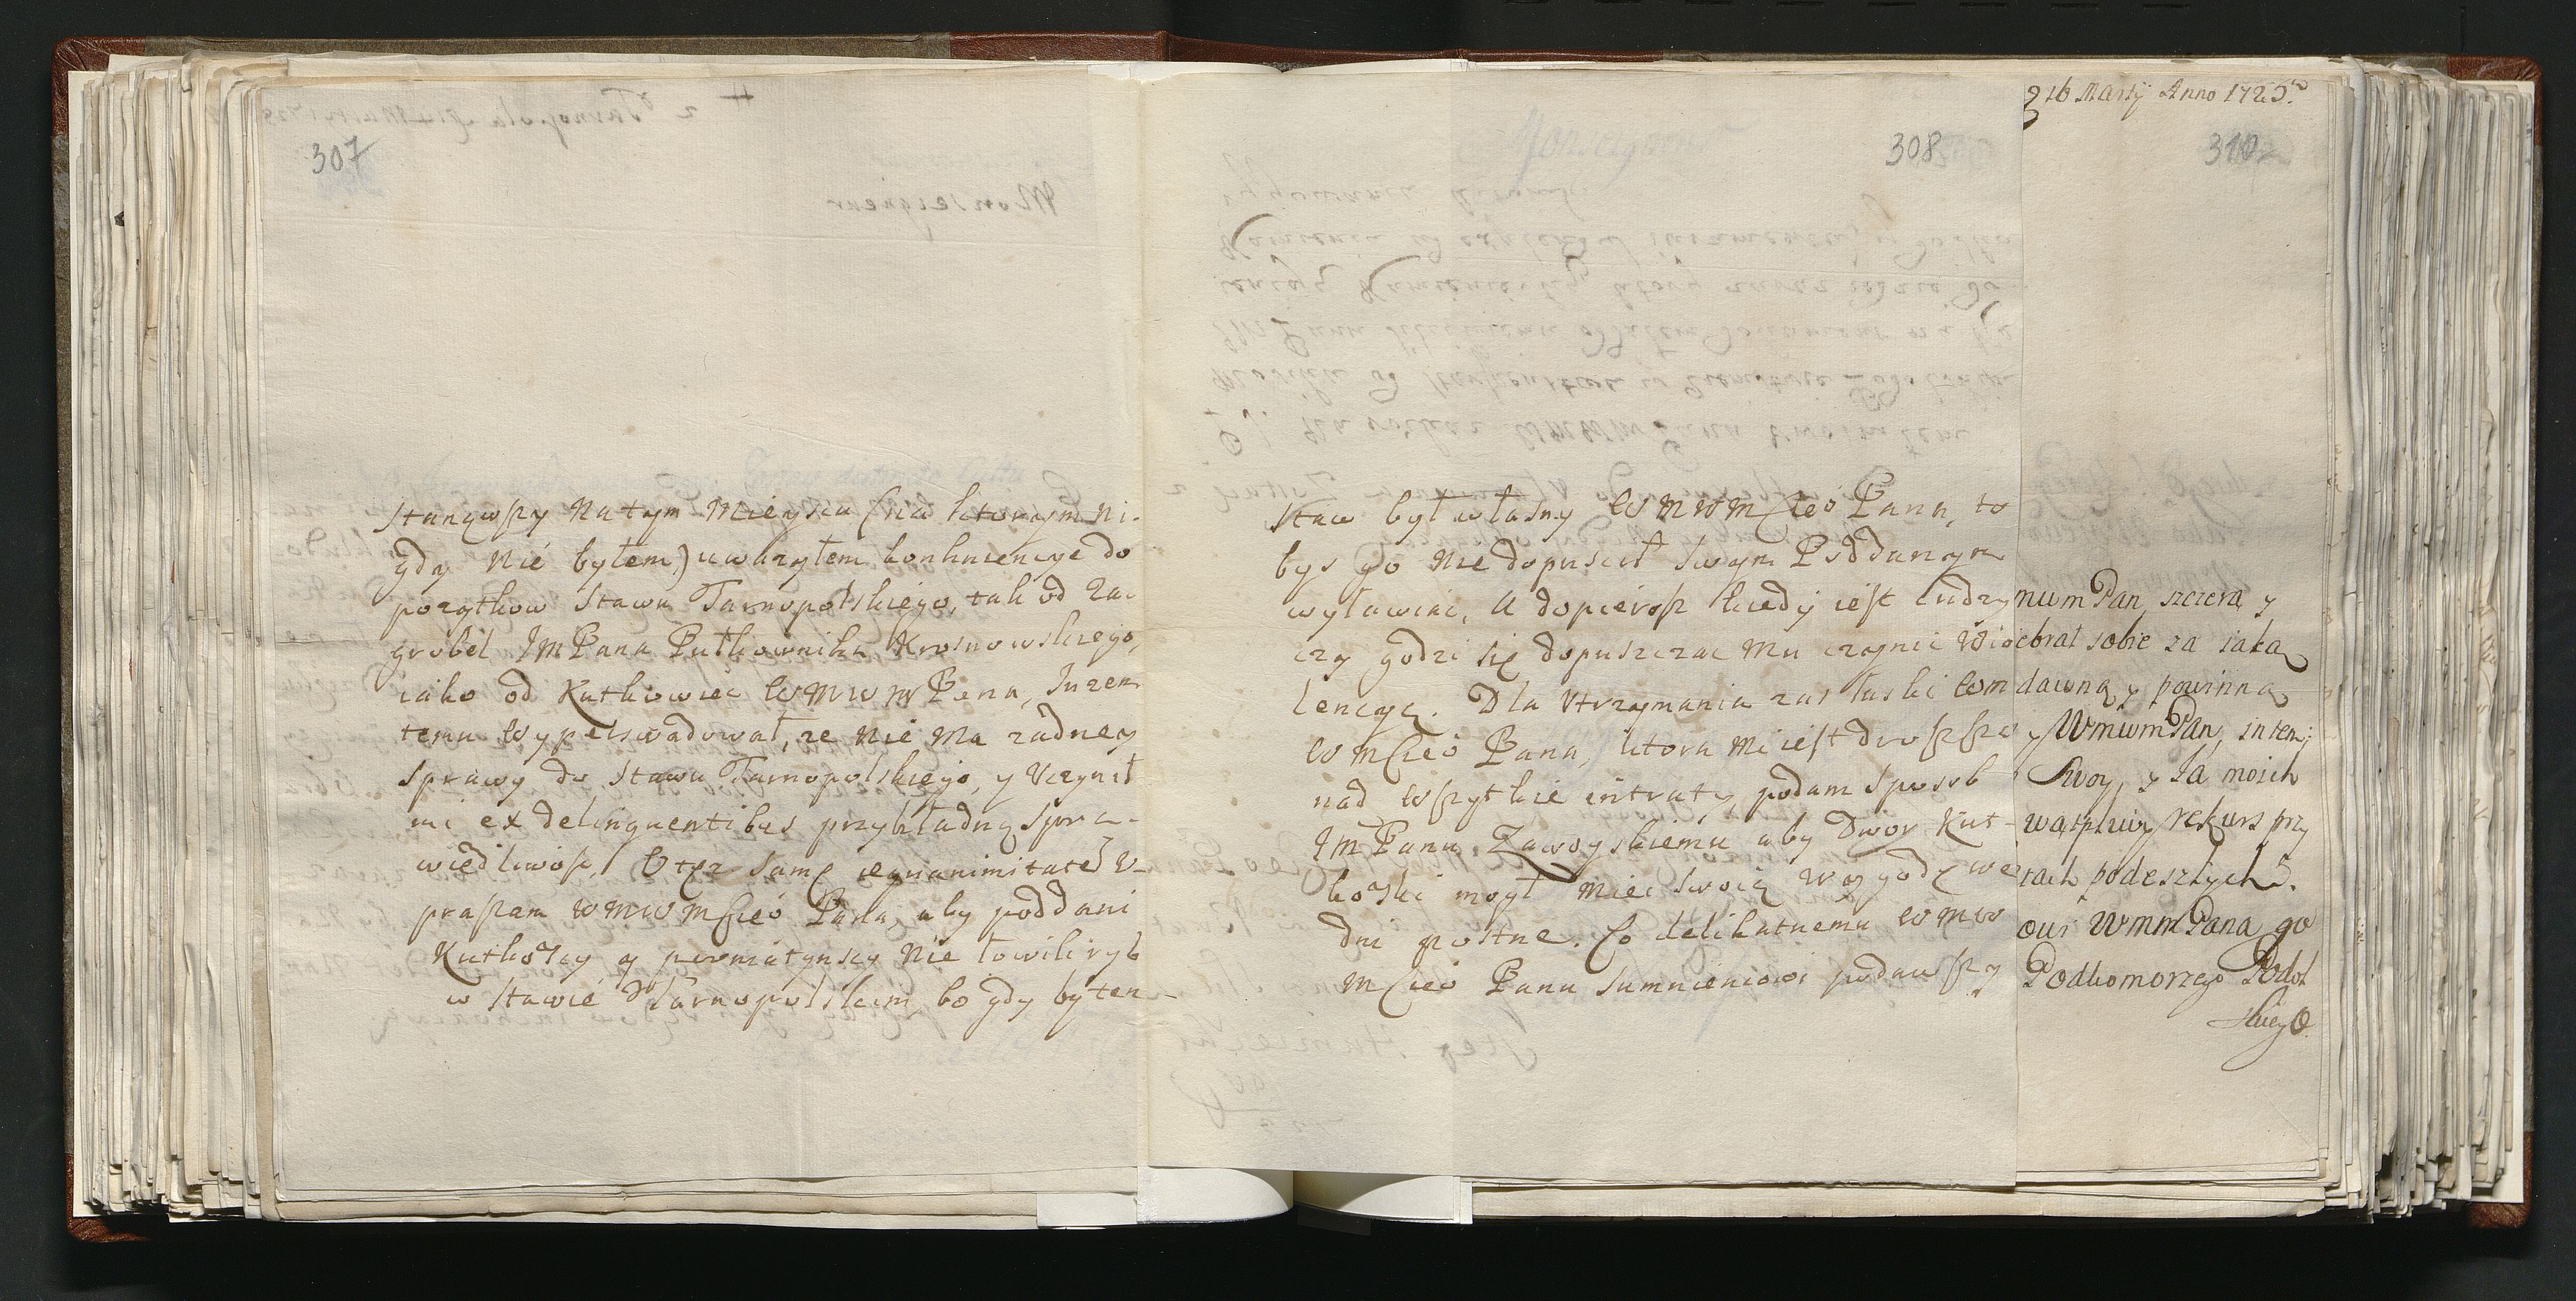 307
Stanąwszy na tym mieyscu (na ktorym ni-
gdy nie byłem) uwazyłem konkurencye do
pozytkow Stawu Tarnopolskiego, tak od Za-
grobel JMPana Pułkownika Krosnowskiego,
iako od Kutkowiec WMWMPana,
temu wyperswadował, ze nie ma zadney
sprawy do Stawu Tarnopolskiego, y Uczynił
mi ex delinquentibus przykładną spra-
wiedliwosc, Otęz samę aequanimitatem u-
praszam WMWMSciō Pana, aby poddani
Kutkoscy y nie łowili ryb
w stawie Tarnopolskim, bo gdy by ten
308
staw był własny WMWMSciō Pana, to
bys go nie dopuscił swym Poddanym
wyławiac, A dopierosz kiedy iest cudzy
czy godzi się dopuszczac mu czynic wio-
lencyą. Dla utrzymania zas łaski WM
WMSciō Pana, ktora mi iest drozsza
nad wszytkie intraty, podam sposob
JMPanu Zawoyskiemu aby Dwor Kut-
koski mogł miec swoią wygodę we
dni postne. Co delikatnemu WMW
MSciō Pana sumnieniowi podawszy
16 Martij Anno 1725
310
mwm Pan, szczerą y
ebrał sobie za iaką
dawną y powinną
y WmwmPan,
Swoy, y Ia moich
wątpliwy rekurs przy
rach podeszłych
WmmPana go
Podkomorzego Podol
skiego